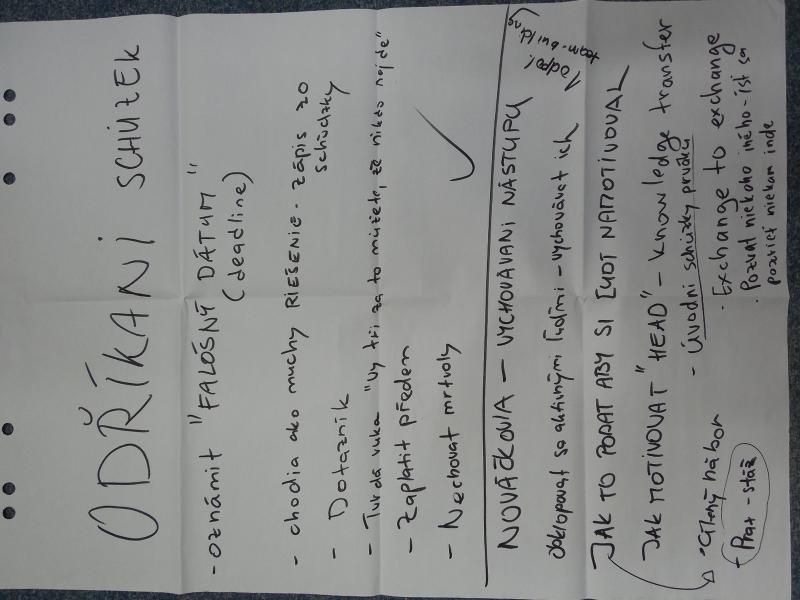 ODŘÍKANÍ SCHŮZEK
- oznámit "FALOŠNÝ DÁTUM"
(deadline)
- chodia ako muchy RIEŠENIE - zápis zo
schůdzky
- Dotazník
- Tvrdá ruka "Vy tři za to můžete, že nikto nejde"
- Zaplatit předem
- Nechovat mrtvoly
✓
1 odpol.
team-building
NOVÁČKOVIA - VYCHOVÁVANI NÁSTUPCU
obklopovat sa aktivnými ľuďmi - vychovávat ich
JAK TO PODAT ABY SI ĽUDI NAMOTIVOVAL
JAK MOTIVOVAT "HEAD" - Knowledge transfer
- Úvodní schůzky prváků
• Cílený nábor
• Prax - stáž
• Exchange to exchange
• Pozval niekoho iného - íst sa
pozriet niekam inde